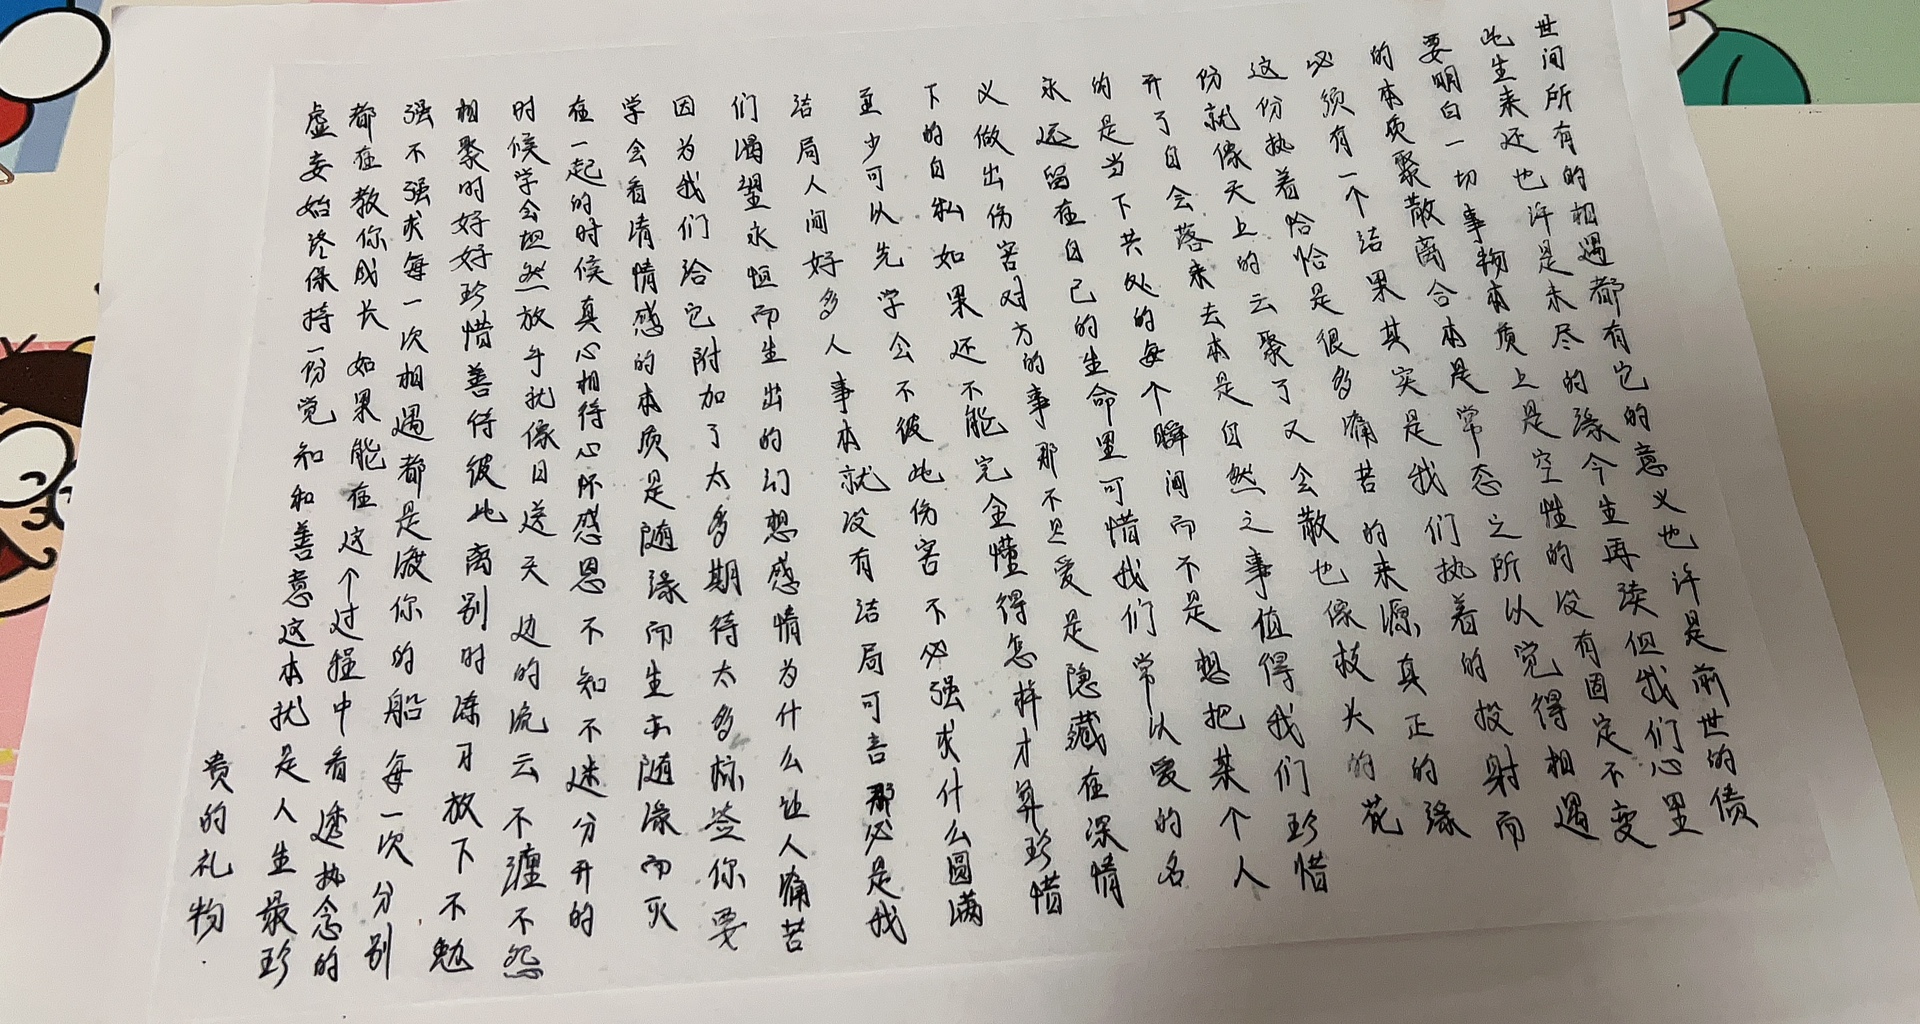 世间所有的相遇都有它的意义也许是前世的债
此生来还也许是未尽的缘今生再续但我们心里
要明白一切事物本质上是空性的没有固定不变
的本质聚散离合本是常态之所以觉得相遇
必须有一个结果其实是我们执着的投射而
这份执着恰恰是很多痛苦的来源真正的缘
份就像天上的云聚了又会散也像枝头的花
开了自会落来去本是自然之事值得我们珍惜
的是当下共处的每个瞬间而不是想把某个人
永远留在自己的生命里可惜我们常以爱的名
义做出伤害对方的事那不是爱是隐藏在深情
下的自私如果还不能完全懂得怎样才算珍惜
至少可以先学会不彼此伤害不必强求什么圆满
结局人间好多人事本就没有结局可言那必是我
们渴望永恒而生出的幻想感情为什么让人痛苦
因为我们给它附加了太多期待太多标签你要
学会看清情感的本质是随缘而生亦随缘而灭
在一起的时候真心相待心怀感恩不知不迷分开的
时候学会坦然放手扰像目送天边的流云不缠不怨
相聚时好好珍惜善待彼此离别时练习放下不勉
强不强求每一次相遇都是渡你的船每一次分别
都在教你成长如果能在这个过程中看透执念的
虚妄始终保持一份觉知和善意这本扰是人生最珍
贵的礼物.